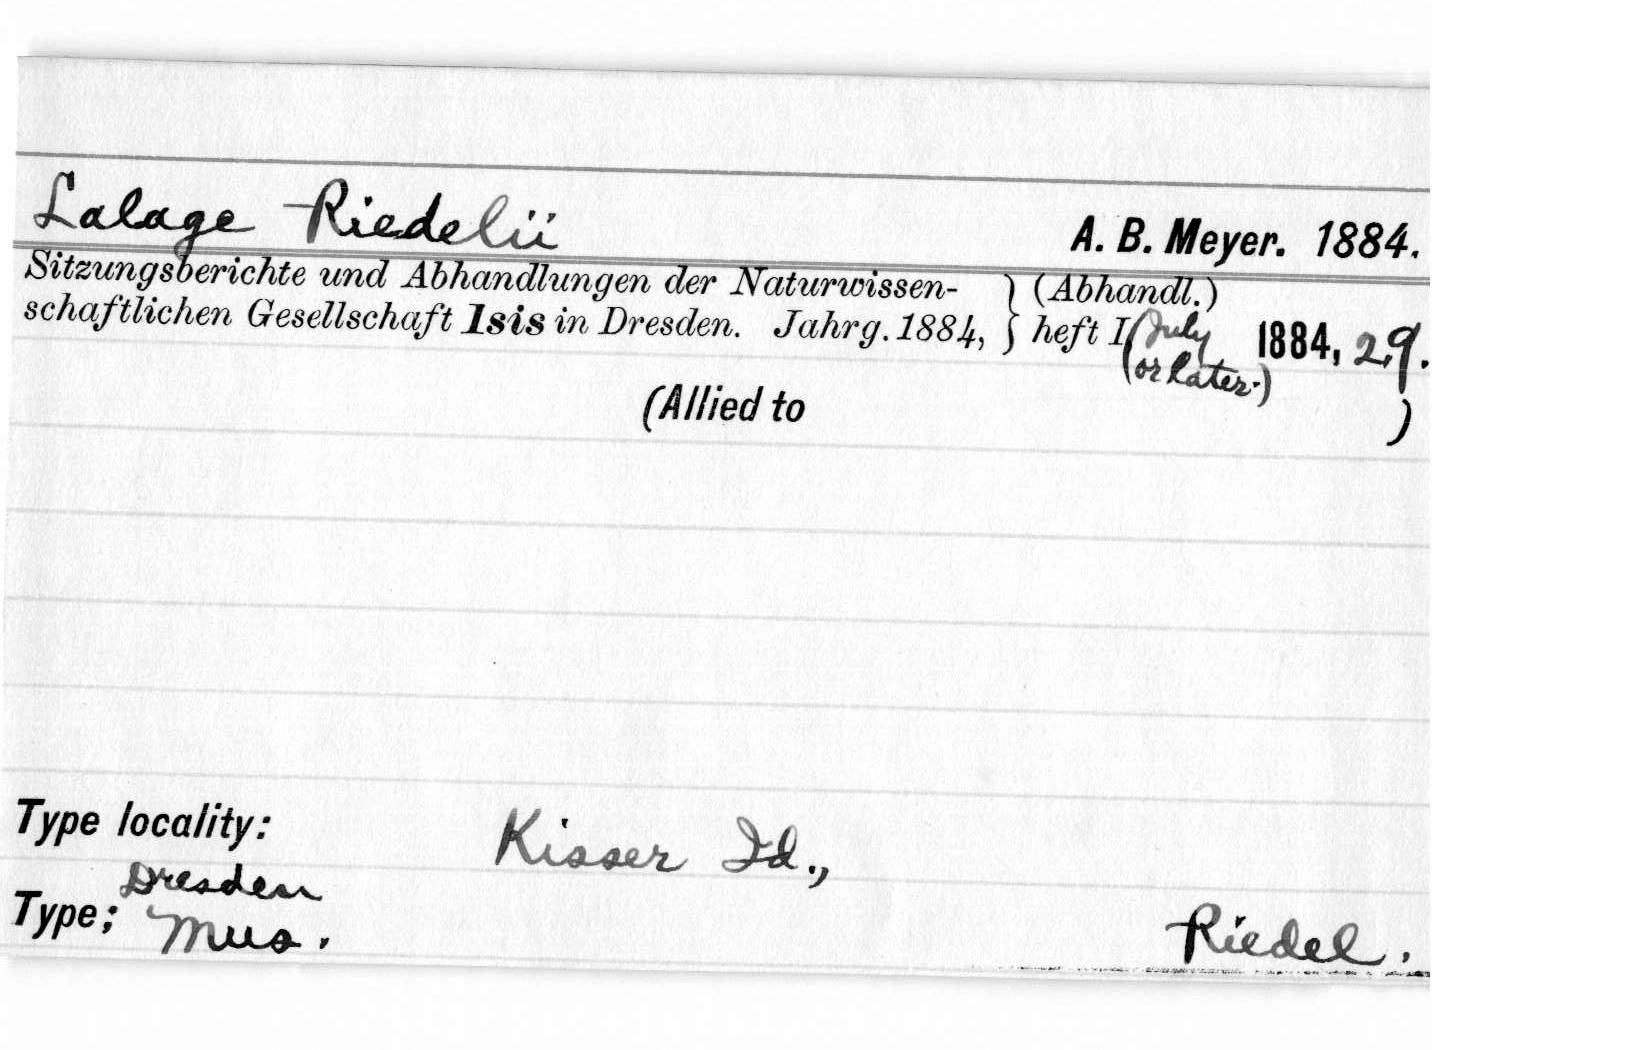 Lalage Riedelii A. B. Meyer. 1884.
Sitzungsberichte und Abhandlungen der Naturwissen- } (Abhandl.)
schaftlichen Gesellschaft Isis in Dresden. Jahrg. 1884, } heft I, (July 1884, 29.
(or later.)
(Allied to )
Type locality: Kisser Id.,
Dresden
Type; Mus. Riedel.